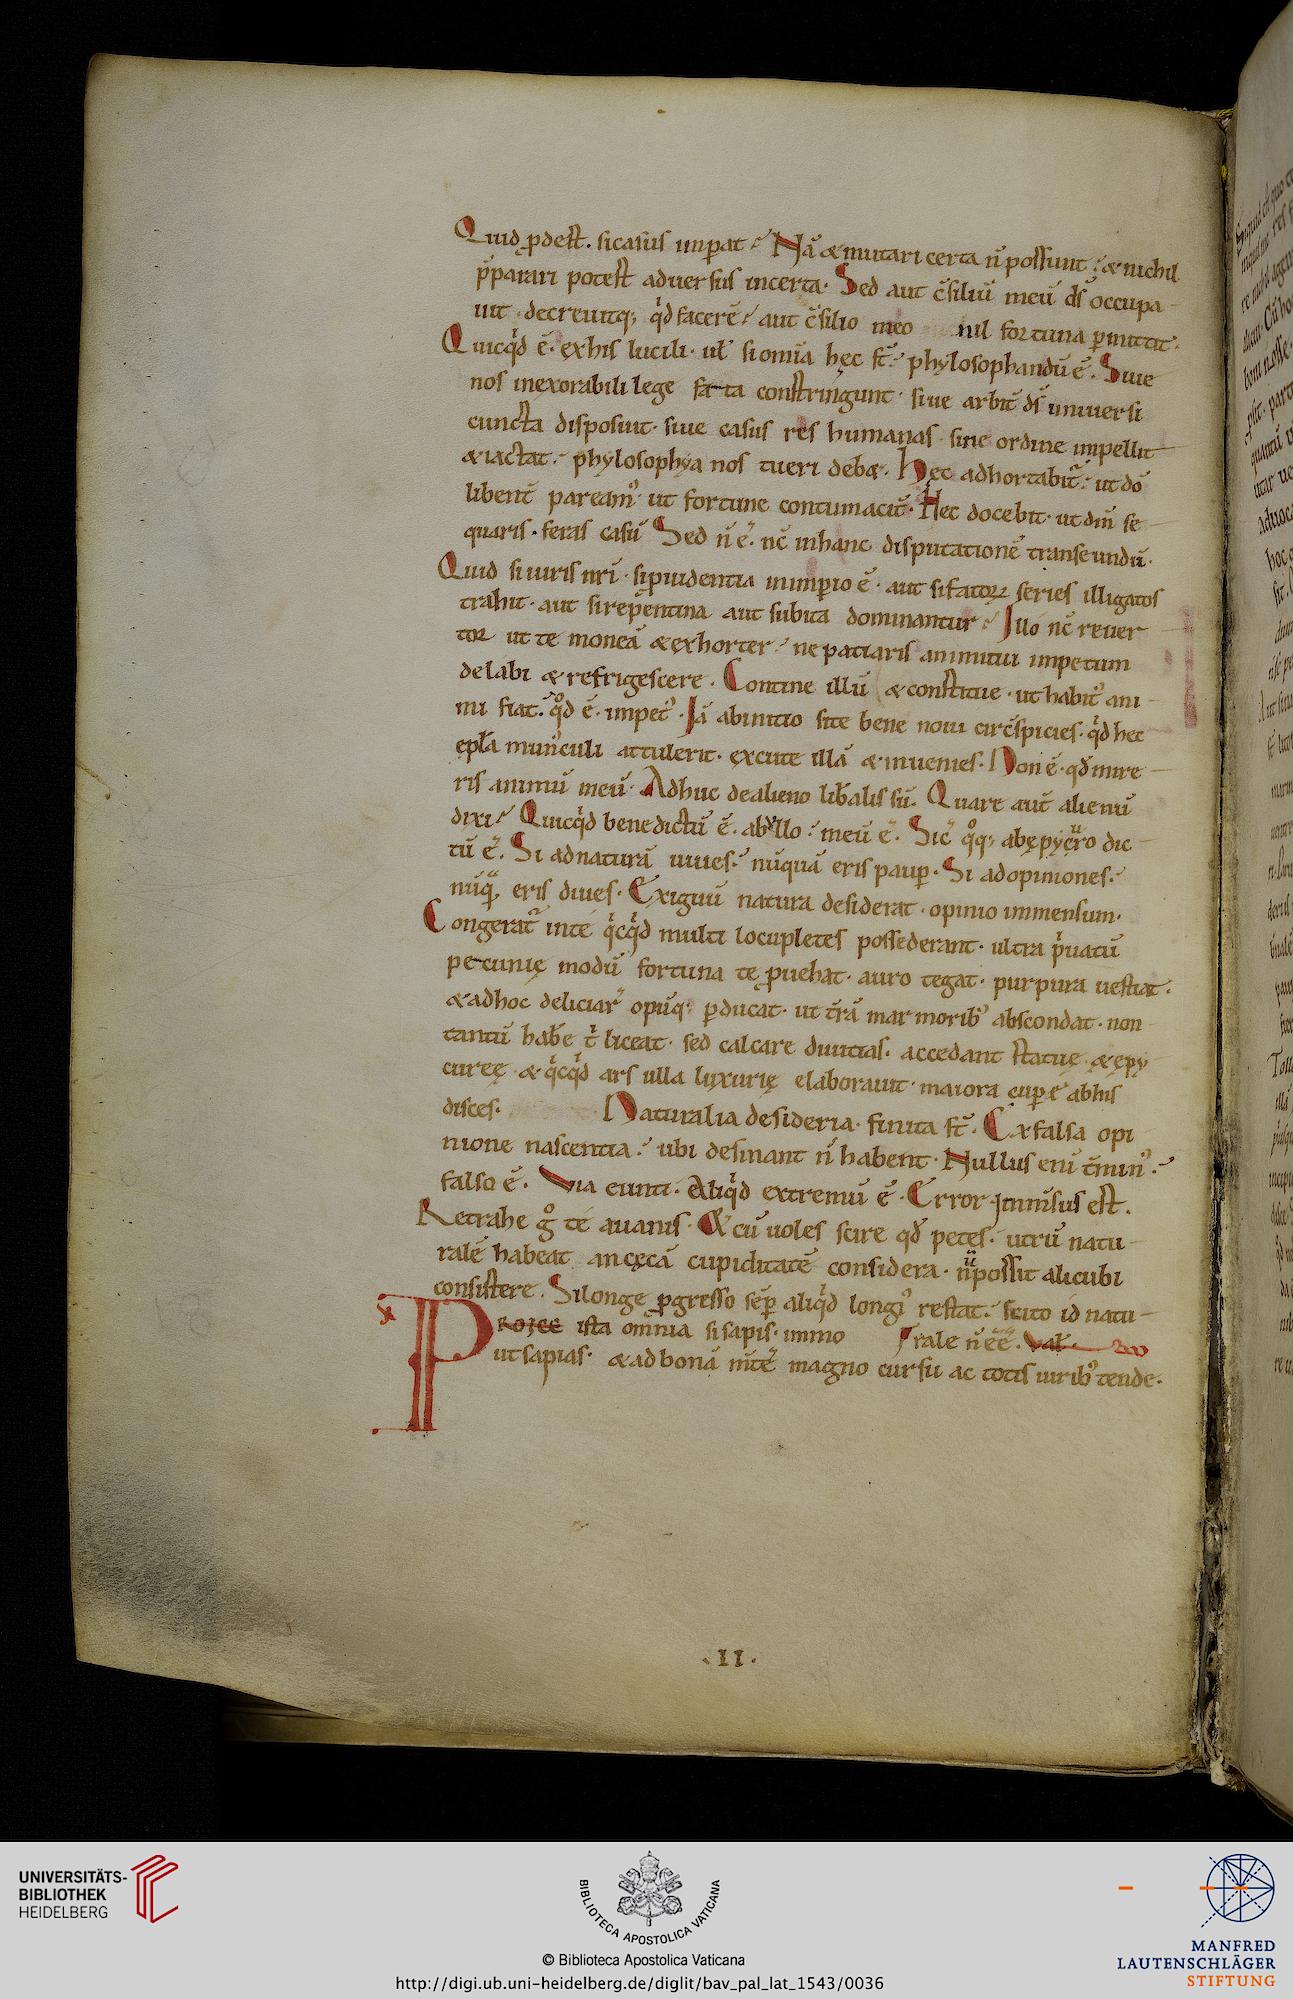 Quid ꝓdest. si casus imꝑat ؛ Nā & mutari certa n̄ possunt ؛ & nichil
p̄parari potest aduersus incerta. Sed aut c̄siliū meū ds̄ occupa
uit. decreuitq; qͥd facerē ؛ aut c̄silio meo nil fortuna ꝑmittit.
Quicqͥd ē. ex his lucili. ul̄ si om̄ia hęc st̄ ؛ phylosophandū ē. Siue
nos inexorabili lege fata constringunt. siue arbit̄ ds̄ uniuersi
cuncta disposiuit. siue casus res humanas sine ordine impellit
& iactat ؛ phylosophya nos tueri deb&. Hęc adhortabit̄ ؛ ut dō
libent̄ pareamꝰ. ut fortune contumacit̄. Hec docebit. ut dm̄ se
quaris. feras casū Sed n̄ ē. nc̄ in hanc disputationē transeundū.
Quid si iuris nr̄i. si ꝓuidentia in imꝑio ē. aut si fatoꝝ series illigatos
trahit. aut si repentina aut subita dominantur ؛ Illo nc̄ reuer
tor ut te moneā & exhorter ؛ ne patiaris animi tui impetum
delabi & refrigescere. Contine illū & constitue. ut habitꝰ ani
mi fiat. qͦd ē. impetꝰ. Iā ab initio si te bene noui circ̄spicies. qͥd hec
epl̄a munꝰculi attulerit. excute illā & inuenies. Non ē. qd̄ mire
ris animū meū. Adhuc de alieno lib̄alis sū. Quare aut̄ alienū
dixi ؛ Quicqͥd bene dictū ē. ab ullo ؛ meū ē. Sic̄ qͦq; ab ępycuro dic
tū ē. Si ad naturā uiues ؛ nūquā eris pauꝑ. Si ad opiniones ؛
nūqͣ eris diues. Exiguū natura desiderat. opinio immensum.
Congerat̄ in te qͥcqͥd multi locupletes possederant. ultra pͥuatū
pecunię modū fortuna te ꝓuehat. auro tegat. purpura uestiat.
& ad hoc deliciarꝰ opūq; ꝑducat. ut t̄rā marmoribꝰ abscondat. non
tantū hab̄e tͥ liceat. sed calcare diuitias. accedant statuę & ępy
cureę & qͥcqͥd ars ulla luxurię elaborauit. maiora cuꝑe ab his
disces. Naturalia desideria. finita st̄. Ex falsa opi
nione nascentia ؛ ubi desinant n̄ habent. Nullus eni t̄minꝰ ؛
falso ē. Via eunti. aliqͥd extremū ē. Error inm̄sus est.
Retrahe gͦ te a uanis. & cū uoles scire qd̄ petes ؛ utrū natu
ralē habeat an cęcā cupiditatē considera. nū possit alicubi
consistere. Si longe ꝓgresso sēꝑ aliqͥd longiꝰ restat ؛ scito id natu
PROICE ista om̄nia si sapis. immo rale n̄ ēē. Val̄.
ut sapias. & ad bonā m̄tē magno cursu ac totis uiribꝰ tende.
.II.
UNIVERSITÄTS-
BIBLIOTHEK
HEIDELBERG
BIBLIOTECA APOSTOLICA VATICANA
© Biblioteca Apostolica Vaticana
http://digi.ub.uni-heidelberg.de/diglit/bav_pal_lat_1543/0036
MANFRED
LAUTENSCHLÄGER
STIFTUNG